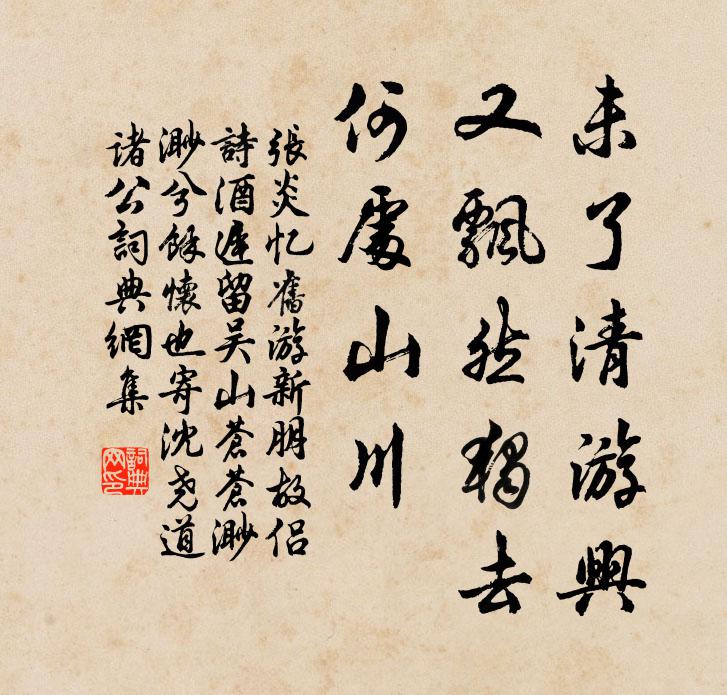 未了清游興
又飄然獨去
何處山川
張炎忆舊游新朋故侣
詩酒遲留吴山蒼蒼渺
渺兮餘懷也寄沈堯道
諸公詞典網集
詞典網印